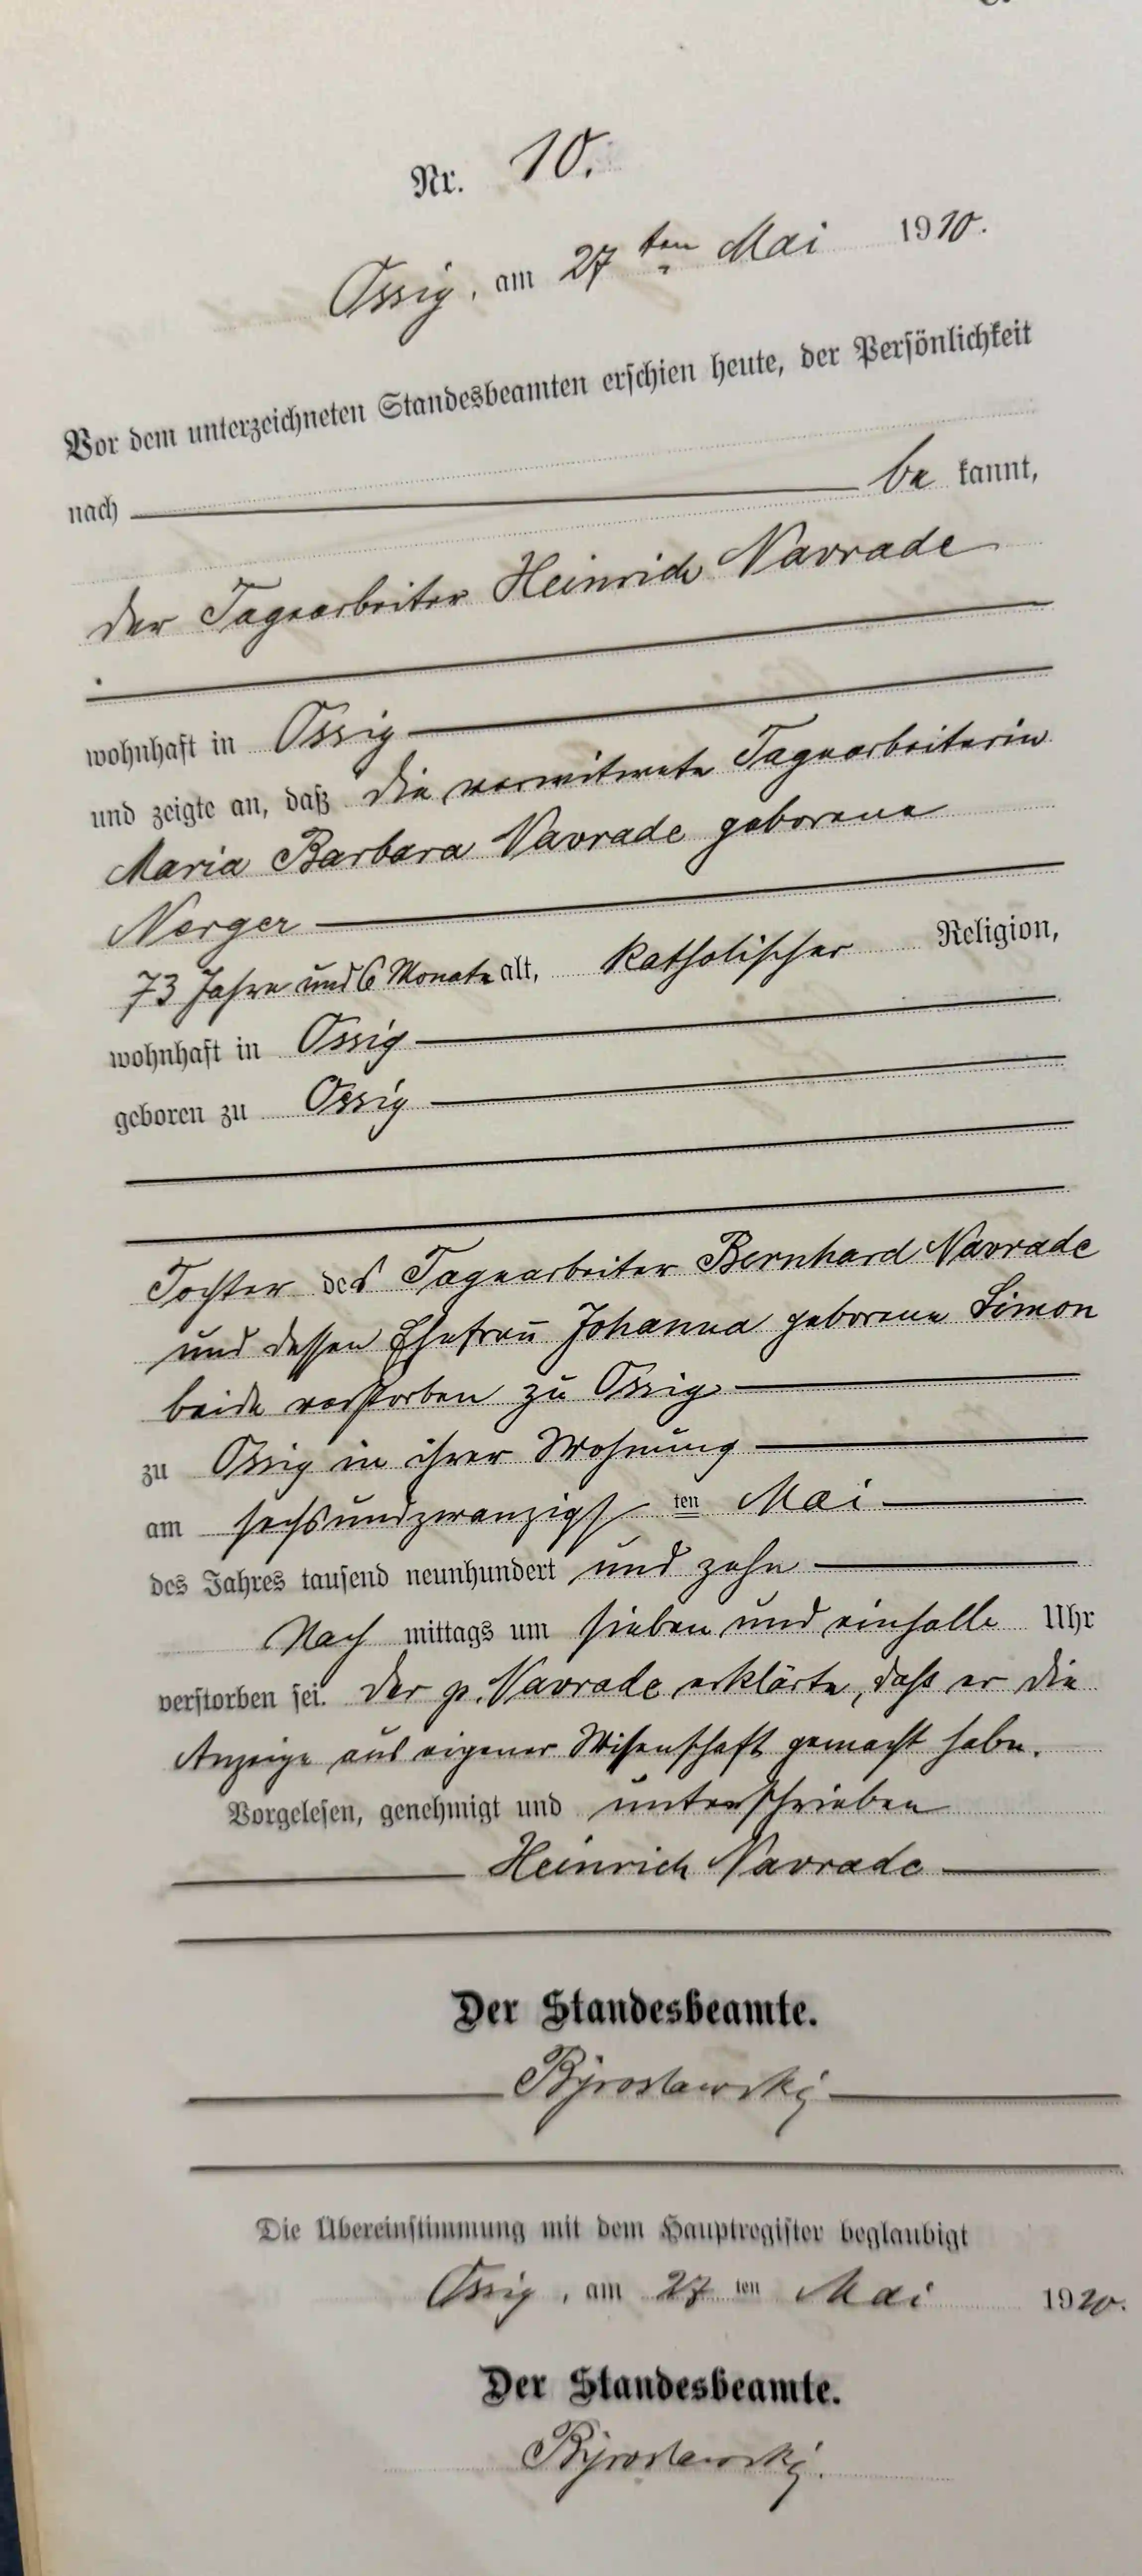 Nr. 10.
Ossig, am 27ten Mai 1910.
Vor dem unterzeichneten Standesbeamten erschien heute, der Persönlichkeit
nach be kannt,
der Tagearbeiter Heinrich Navrade
wohnhaft in Ossig
und zeigte an, daß die verwitwete Tagearbeiterin
Maria Barbara Navrade geborene
Nerger
73 Jahre und 6 Monate alt, katholischer Religion,
wohnhaft in Ossig
geboren zu Ossig
Tochter des Tagearbeiter Bernhard Navrade
und dessen Ehefrau Johanna geborene Simon
beide verstorben zu Ossig
zu Ossig in ihrer Wohnung
am sechsundzwanzigsten Mai
des Jahres tausend neunhundert und zehn
Nach mittags um sieben und einhalb Uhr
verstorben sei. Der p. Navrade erklärte, daß er die
Anzeige aus eigener Wissenschaft gemacht habe.
Vorgelesen, genehmigt und unterschrieben
Heinrich Navrade
Der Standesbeamte.
Die Übereinstimmung mit dem Hauptregister beglaubigt
Ossig, am 27ten Mai 1910.
Der Standesbeamte.